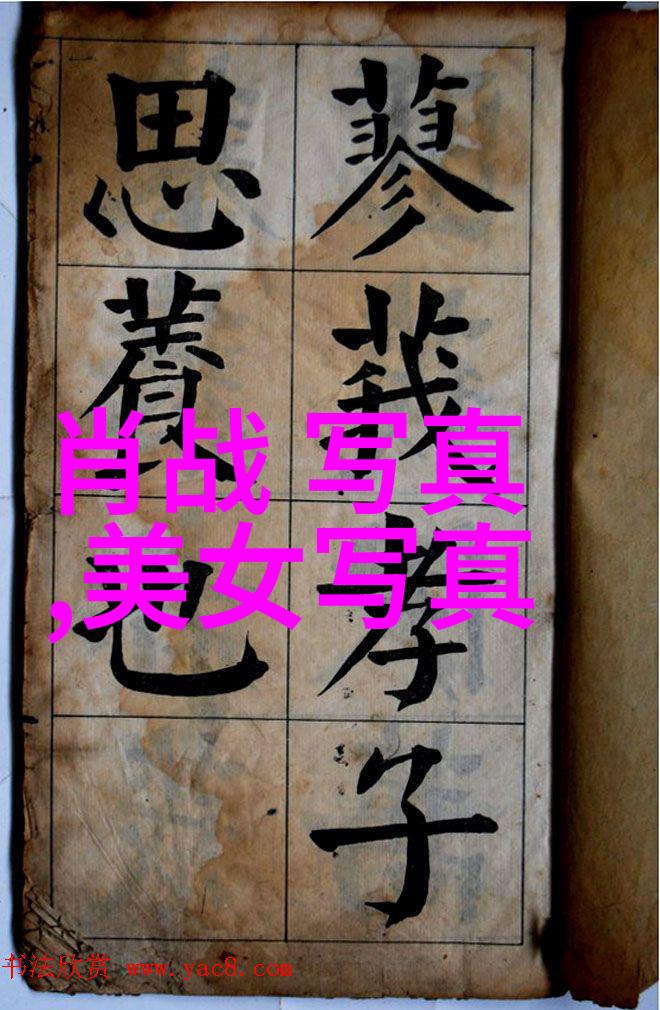 蓼莪孝子
思養也
肖战 写真
,美女写真
书法欣赏 www.yac8.com